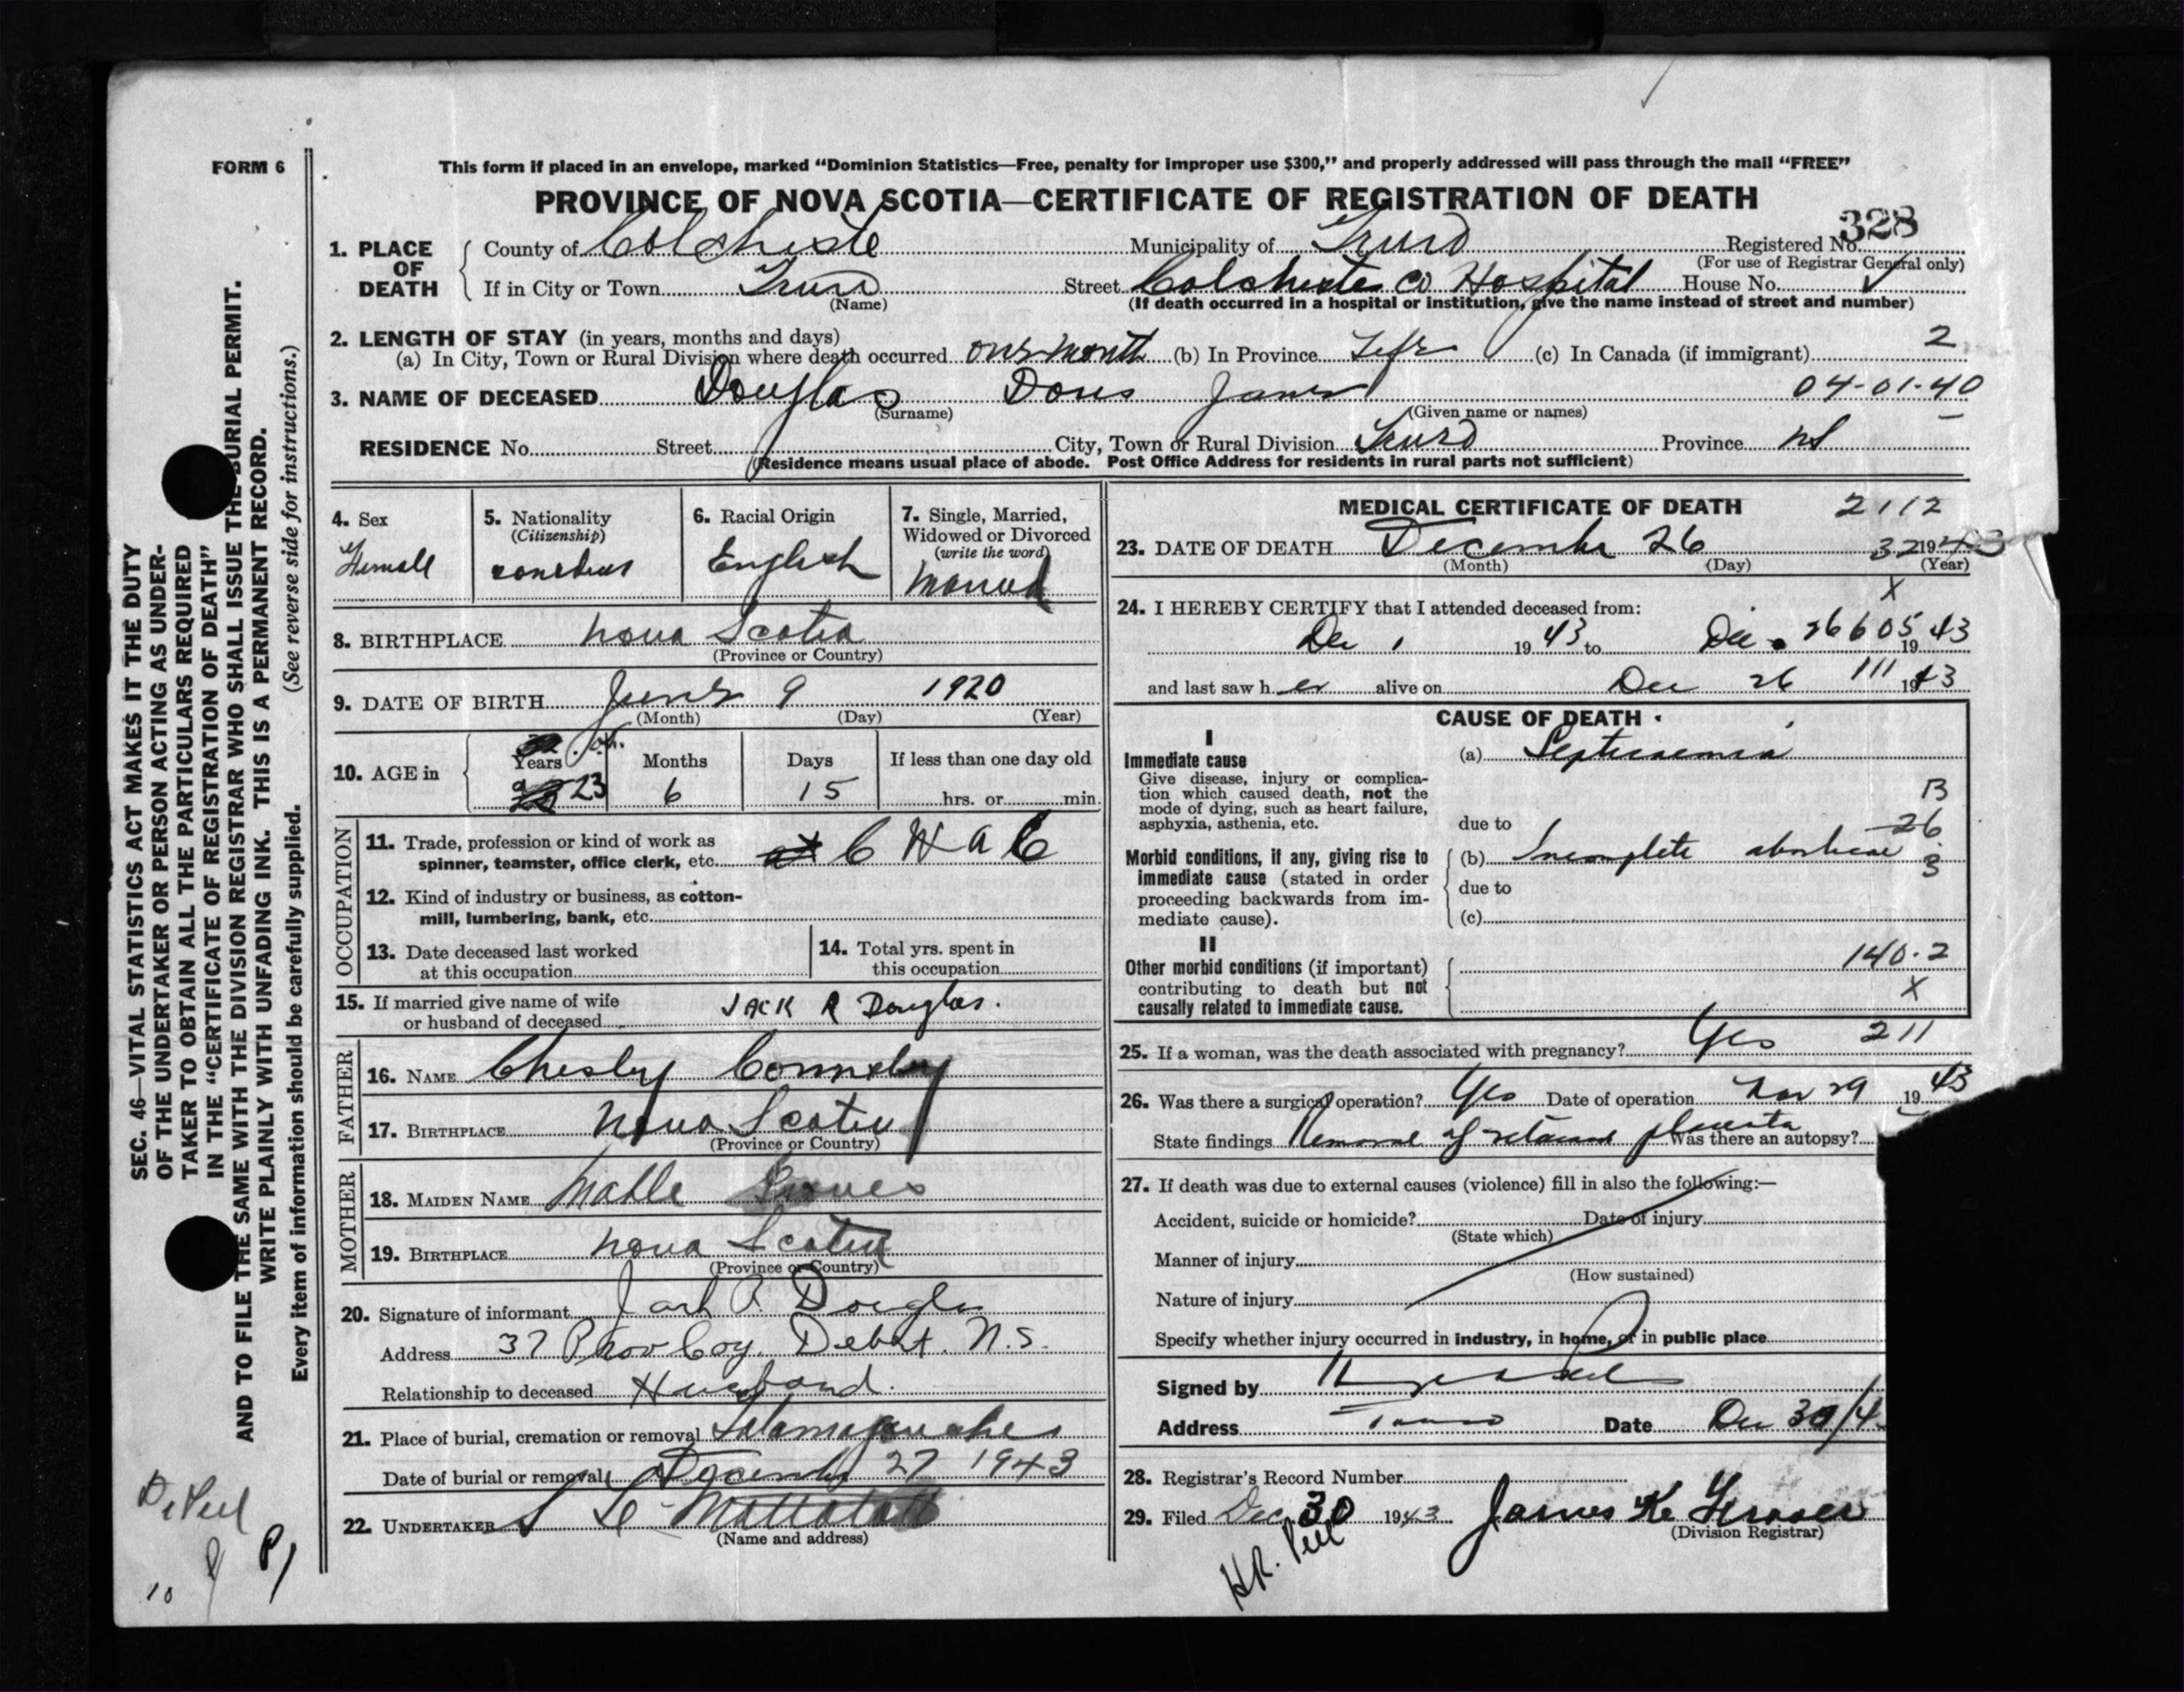 FORM 6
This form if placed in an envelope, marked “Dominion Statistics—Free, penalty for improper use $300,” and properly addressed will pass through the mail “FREE”
PROVINCE OF NOVA SCOTIA—CERTIFICATE OF REGISTRATION OF DEATH
328
1. PLACE OF DEATH
County of Colcheste Municipality of Truro Registered No.
(For use of Registrar General only)
If in City or Town Truro Street Colcheste Co Hospital House No.
(Name) (If death occurred in a hospital or institution, give the name instead of street and number)
2. LENGTH OF STAY (in years, months and days)
(a) In City, Town or Rural Division where death occurred one month (b) In Province Life (c) In Canada (if immigrant) 2
3. NAME OF DECEASED Douglas Doris 04-01-40
(Surname) (Given name or names)
RESIDENCE No. Street City, Town or Rural Division Truro Province NS
(Residence means usual place of abode. Post Office Address for residents in rural parts not sufficient)
4. Sex
Female
5. Nationality
(Citizenship)
6. Racial Origin
English
7. Single, Married,
Widowed or Divorced
(write the word)
Married
8. BIRTHPLACE Nova Scotia
(Province or Country)
9. DATE OF BIRTH June 9 1920
(Month) (Day) (Year)
10. AGE in
Years Months Days If less than one day old
23 6 15 hrs. or min.
OCCUPATION
11. Trade, profession or kind of work as
spinner, teamster, office clerk, etc. C W A C
12. Kind of industry or business, as cotton-
mill, lumbering, bank, etc.
13. Date deceased last worked
at this occupation
14. Total yrs. spent in
this occupation
15. If married give name of wife
or husband of deceased JACK R Douglas.
FATHER
16. NAME Chesley
17. BIRTHPLACE Nova Scotia
(Province or Country)
MOTHER
18. MAIDEN NAME
19. BIRTHPLACE Nova Scotia
(Province or Country)
20. Signature of informant Jack R. Douglas
Address 37 Prov Coy. Debert. N.S.
Relationship to deceased Husband.
21. Place of burial, cremation or removal
Date of burial or removal December 27 1943
22. UNDERTAKER
(Name and address)
MEDICAL CERTIFICATE OF DEATH 2112
23. DATE OF DEATH December 26 32 1943
(Month) (Day) (Year)
X
24. I HEREBY CERTIFY that I attended deceased from:
Dec 1 1943 to Dec. 26 605 1943
and last saw her alive on Dec 26 111 1943
CAUSE OF DEATH
I
Immediate cause
Give disease, injury or complica-
tion which caused death, not the
mode of dying, such as heart failure,
asphyxia, asthenia, etc.
(a) Septicaemia
B
due to
26
Morbid conditions, if any, giving rise to
immediate cause (stated in order
proceeding backwards from im-
mediate cause).
(b) Incomplete abortion 3
due to
(c)
II
Other morbid conditions (if important)
contributing to death but not
causally related to immediate cause.
140.2
X
25. If a woman, was the death associated with pregnancy? Yes 211
26. Was there a surgical operation? Yes Date of operation Nov 29 1943
State findings Removal of retained placenta Was there an autopsy?
27. If death was due to external causes (violence) fill in also the following:—
Accident, suicide or homicide? Date of injury
(State which)
Manner of injury
(How sustained)
Nature of injury
Specify whether injury occurred in industry, in home, or in public place
Signed by
Address Truro Date Dec 30/4
28. Registrar's Record Number
29. Filed Dec 30 1943 James K. Fraser
(Division Registrar)
H.R. Peel
SEC. 46—VITAL STATISTICS ACT MAKES IT THE DUTY
OF THE UNDERTAKER OR PERSON ACTING AS UNDER-
TAKER TO OBTAIN ALL THE PARTICULARS REQUIRED
IN THE “CERTIFICATE OF REGISTRATION OF DEATH”
AND TO FILE THE SAME WITH THE DIVISION REGISTRAR WHO SHALL ISSUE THE BURIAL PERMIT.
WRITE PLAINLY WITH UNFADING INK. THIS IS A PERMANENT RECORD.
Every item of information should be carefully supplied. (See reverse side for instructions.)
10